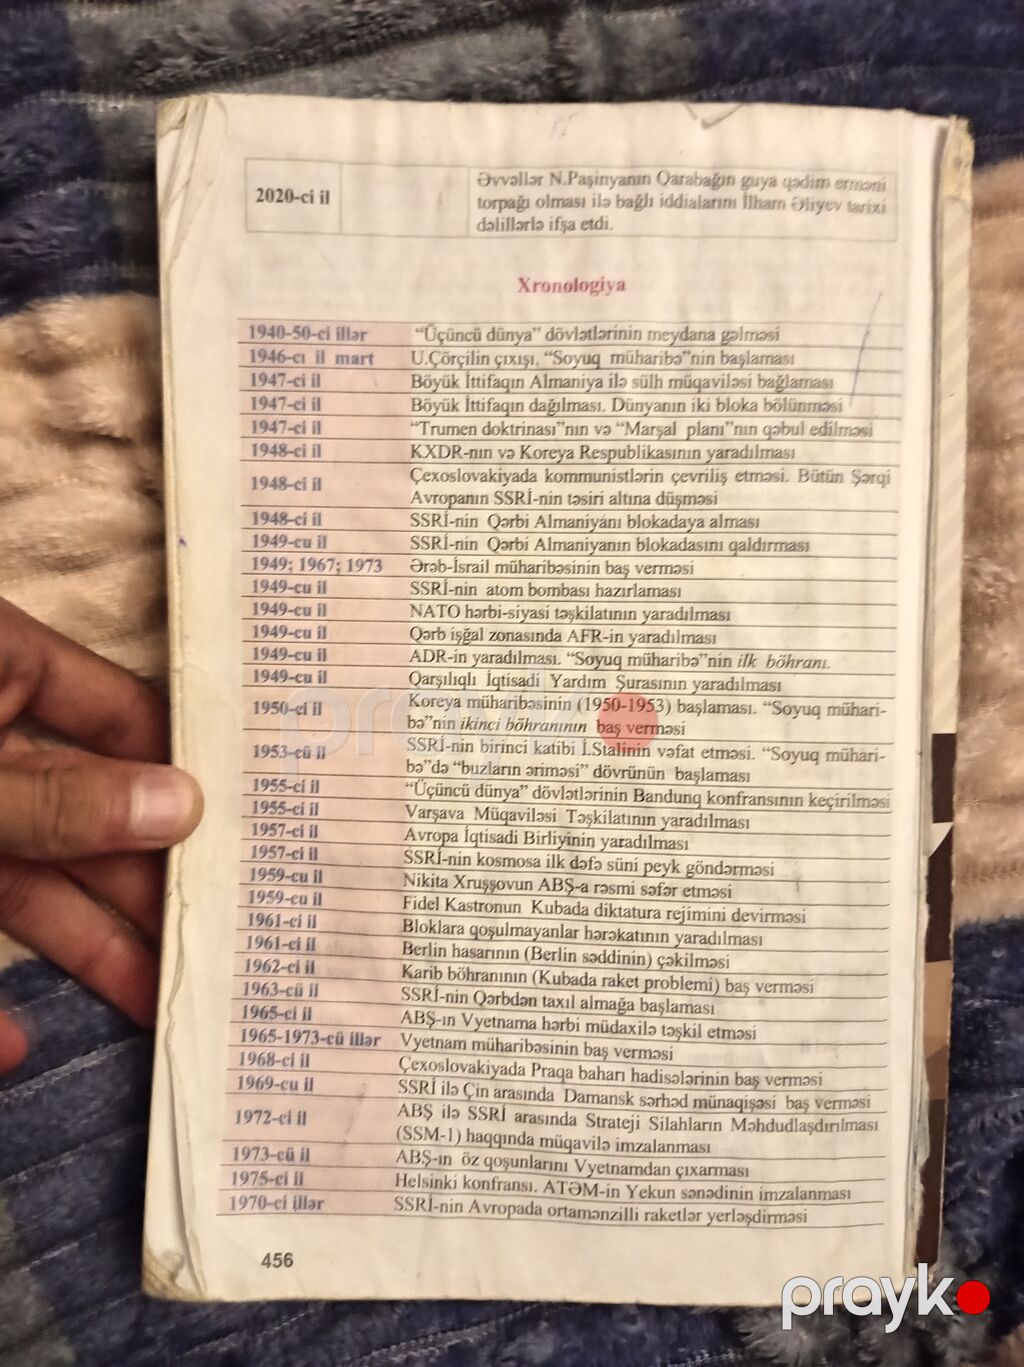 2020-ci il
Əvvəllər N.Paşinyanın Qarabağın guya qədim erməni
torpağı olması ilə bağlı iddialarını İlham Əliyev tarixi
dəlillərlə ifşa etdi.
Xronologiya
1940-50-ci illər “Üçüncü dünya” dövlətlərinin meydana gəlməsi
1946-cı il mart U.Çörçilin çıxışı. “Soyuq müharibə”nin başlaması
1947-ci il Böyük İttifaqın Almaniya ilə sülh müqaviləsi bağlaması
1947-ci il Böyük İttifaqın dağılması. Dünyanın iki bloka bölünməsi
1947-ci il “Trumen doktrinası”nın və “Marşal planı”nın qəbul edilməsi
1948-ci il KXDR-nın və Koreya Respublikasının yaradılması
1948-ci il Çexoslovakiyada kommunistlərin çevriliş etməsi. Bütün Şərqi
Avropanın SSRİ-nin təsiri altına düşməsi
1948-ci il SSRİ-nin Qərbi Almaniyanı blokadaya alması
1949-cu il SSRİ-nin Qərbi Almaniyanın blokadasını qaldırması
1949; 1967; 1973 Ərəb-İsrail müharibəsinin baş verməsi
1949-cu il SSRİ-nin atom bombası hazırlaması
1949-cu il NATO hərbi-siyasi təşkilatının yaradılması
1949-cu il Qərb işğal zonasında AFR-in yaradılması
1949-cu il ADR-in yaradılması. “Soyuq müharibə”nin ilk böhranı.
1949-cu il Qarşılıqlı İqtisadi Yardım Şurasının yaradılması
1950-ci il Koreya müharibəsinin (1950-1953) başlaması. “Soyuq mühari-
bə”nin ikinci böhranının baş verməsi
1953-cü il SSRİ-nin birinci katibi İ.Stalinin vəfat etməsi. “Soyuq mühari-
bə”də “buzların əriməsi” dövrünün başlaması
1955-ci il “Üçüncü dünya” dövlətlərinin Bandunq konfransının keçirilməsi
1955-ci il Varşava Müqaviləsi Təşkilatının yaradılması
1957-ci il Avropa İqtisadi Birliyinin yaradılması
1957-ci il SSRİ-nin kosmosa ilk dəfə süni peyk göndərməsi
1959-cu il Nikita Xruşşovun ABŞ-a rəsmi səfər etməsi
1959-cu il Fidel Kastronun Kubada diktatura rejimini devirməsi
1961-ci il Bloklara qoşulmayanlar hərəkatının yaradılması
1961-ci il Berlin hasarının (Berlin səddinin) çəkilməsi
1962-ci il Karib böhranının (Kubada raket problemi) baş verməsi
1963-cü il SSRİ-nin Qərbdən taxıl almağa başlaması
1965-ci il ABŞ-ın Vyetnama hərbi müdaxilə təşkil etməsi
1965-1973-cü illər Vyetnam müharibəsinin baş verməsi
1968-ci il Çexoslovakiyada Praqa baharı hadisələrinin baş verməsi
1969-cu il SSRİ ilə Çin arasında Damansk sərhəd münaqişəsi baş verməsi
1972-ci il ABŞ ilə SSRİ arasında Strateji Silahların Məhdudlaşdırılması
(SSM-1) haqqında müqavilə imzalanması
1973-cü il ABŞ-ın öz qoşunlarını Vyetnamdan çıxarması
1975-ci il Helsinki konfransı. ATƏM-in Yekun sənədinin imzalanması
1970-ci illər SSRİ-nin Avropada ortamənzilli raketlər yerləşdirməsi
456
prayko